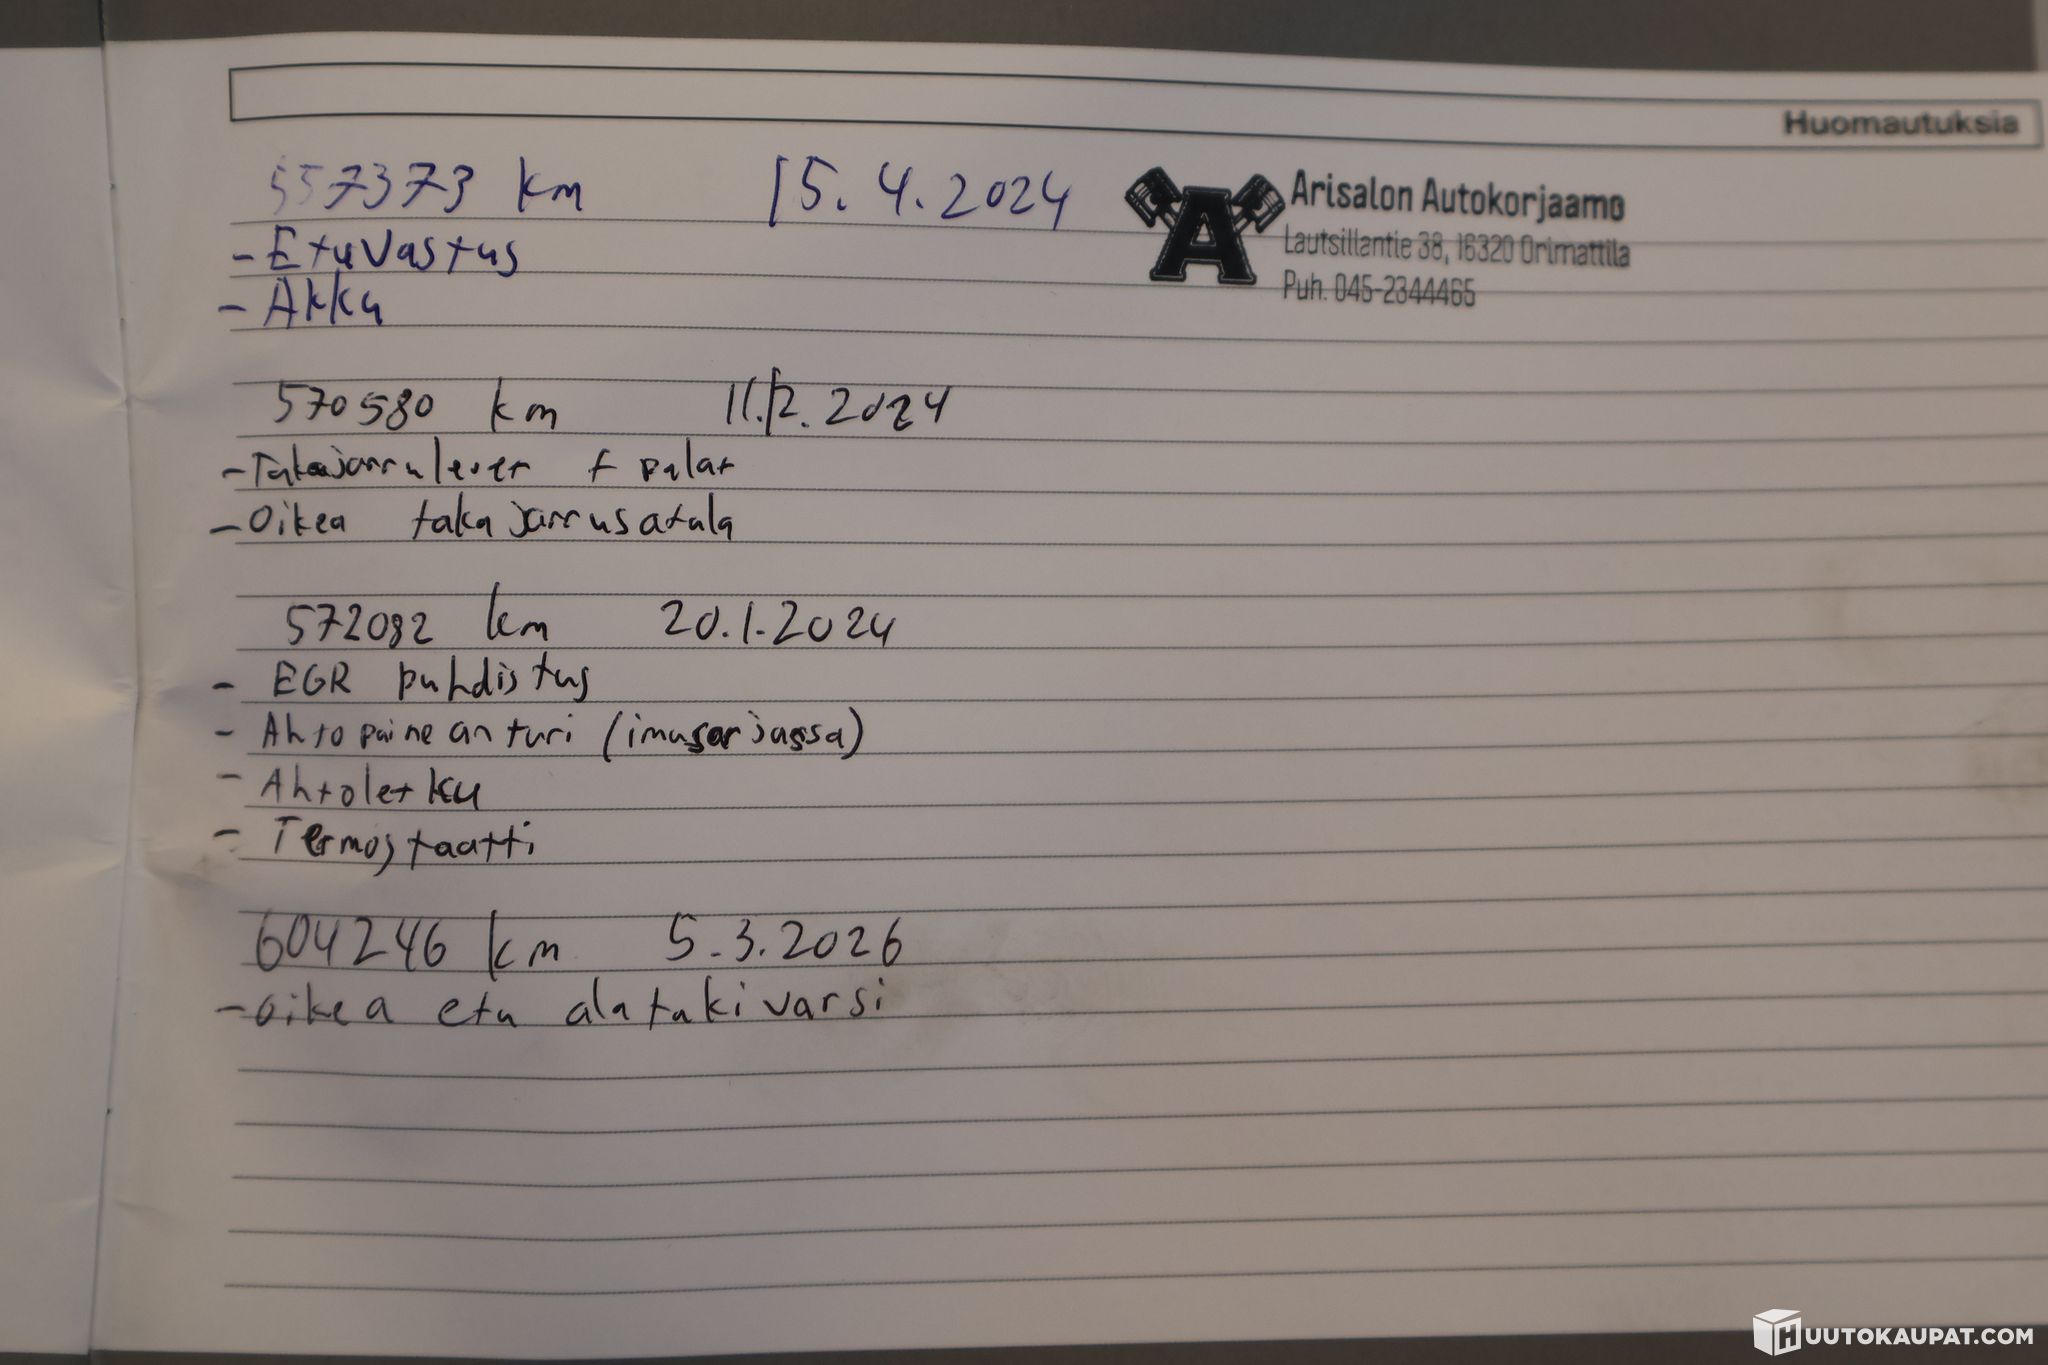 Huomautuksia
557373 km 15.4.2024
Arisalon Autokorjaamo
Lautsillantie 38, 16320 Orimattila
Puh. 045-2344465
- Etuvastus
- Akku
570580 km 11.12.2024
- Takajarrulevyt + palat
- Oikea takajarrusatula
572082 km 20.1.2024
- EGR puhdistus
- Ahtopaineanturi (imusarjassa)
- Ahtoletku
- Termostaatti
604246 km 5.3.2026
- Oikea etu alatukivarsi
HUUTOKAUPAT.COM